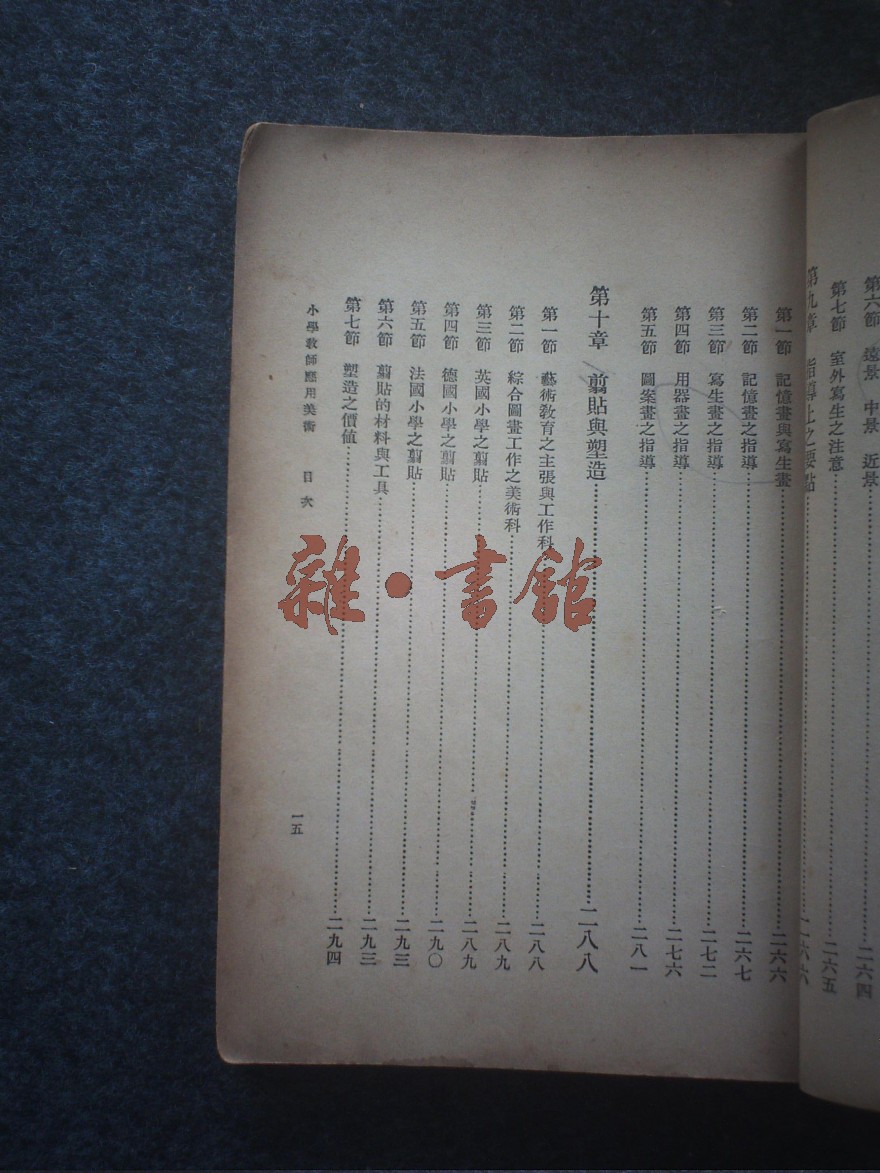 第六節　遠景　中景　近景……二六四
第七節　室外寫生之注意……二六五
第九章　指導上之要點……二六六
第一節　記憶畫與寫生畫……二六六
第二節　記憶畫之指導……二六七
第三節　寫生畫之指導……二七二
第四節　用器畫之指導……二七六
第五節　圖案畫之指導……二八一
第十章　剪貼與塑造……二八八
第一節　藝術敎育之主張與工作科……二八八
第二節　綜合圖畫工作之美術科……二八九
第三節　英國小學之剪貼……二八九
第四節　德國小學之剪貼……二九〇
第五節　法國小學之剪貼……二九三
第六節　剪貼的材料與工具……二九三
第七節　塑造之價値……二九四
小學敎師應用美術　目次
一五
雜·書館